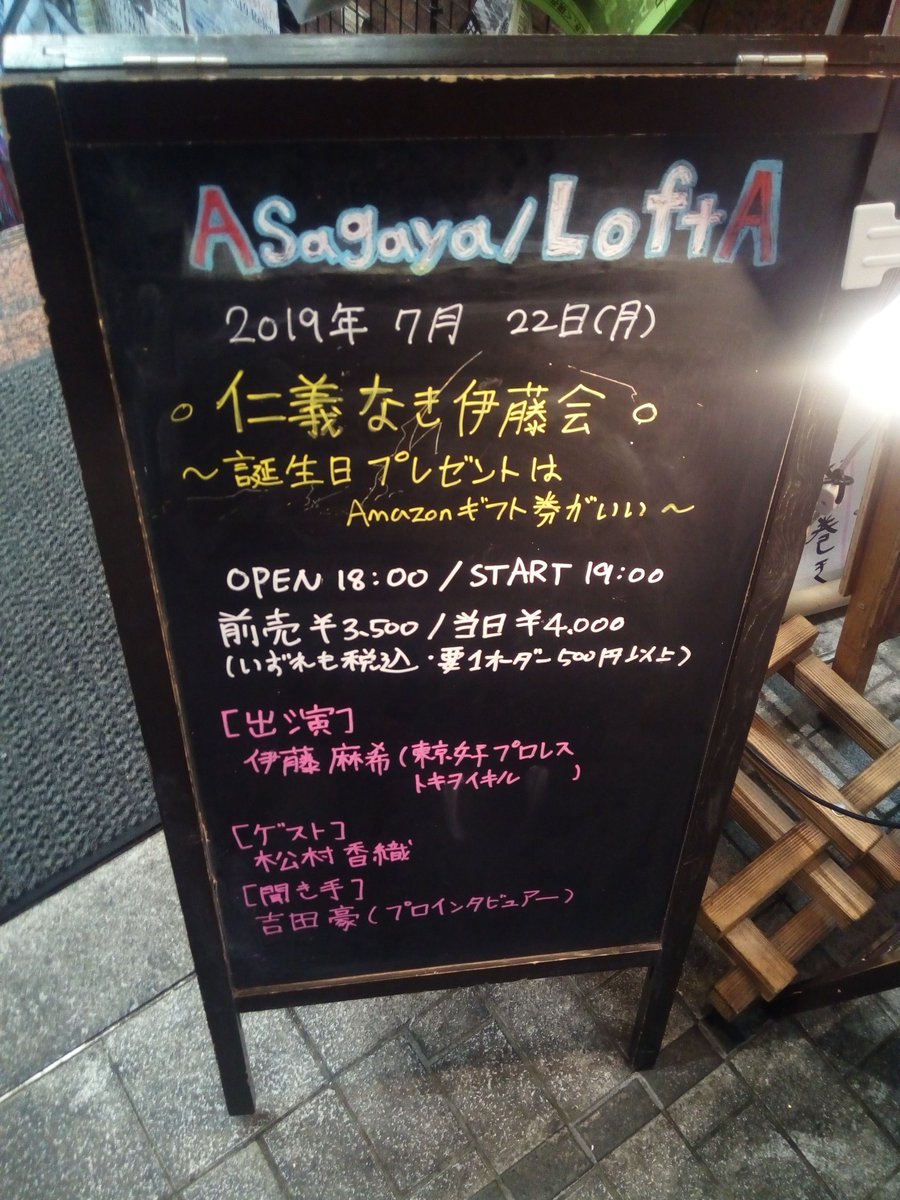 Asagaya/LoftA
2019年 7月 22日(月)
。仁義なき伊藤会。
~誕生日プレゼントは
Amazonギフト券がいい~
OPEN 18:00 / START 19:00
前売¥3.500 / 当日¥4.000
(いずれも税込・要1オーダー500円以上)
[出演]
伊藤 麻希(東京女子プロレス
トキヲイキル )
[ゲスト]
松村香織
[聞き手]
吉田豪(プロインタビュアー)
巻き